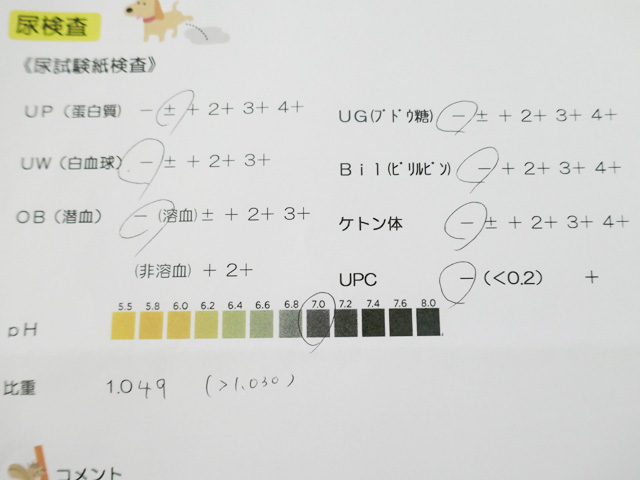 尿検査
《尿試験紙検査》
UP（蛋白質） － ± + 2+ 3+ 4+
UG(ﾌﾞﾄﾞｳ糖) － ± + 2+ 3+ 4+
UW（白血球） － ± + 2+ 3+
Bil(ﾋﾞﾘﾙﾋﾞﾝ) － + 2+ 3+ 4+
OB（潜血） － (溶血)± + 2+ 3+
ケトン体 － ± + 2+ 3+ 4+
(非溶血) + 2+
UPC － (<0.2) +
5.5 5.8 6.0 6.2 6.4 6.6 6.8 7.0 7.2 7.4 7.6 8.0
pH
比重 1.049 (>1.030)
コメント